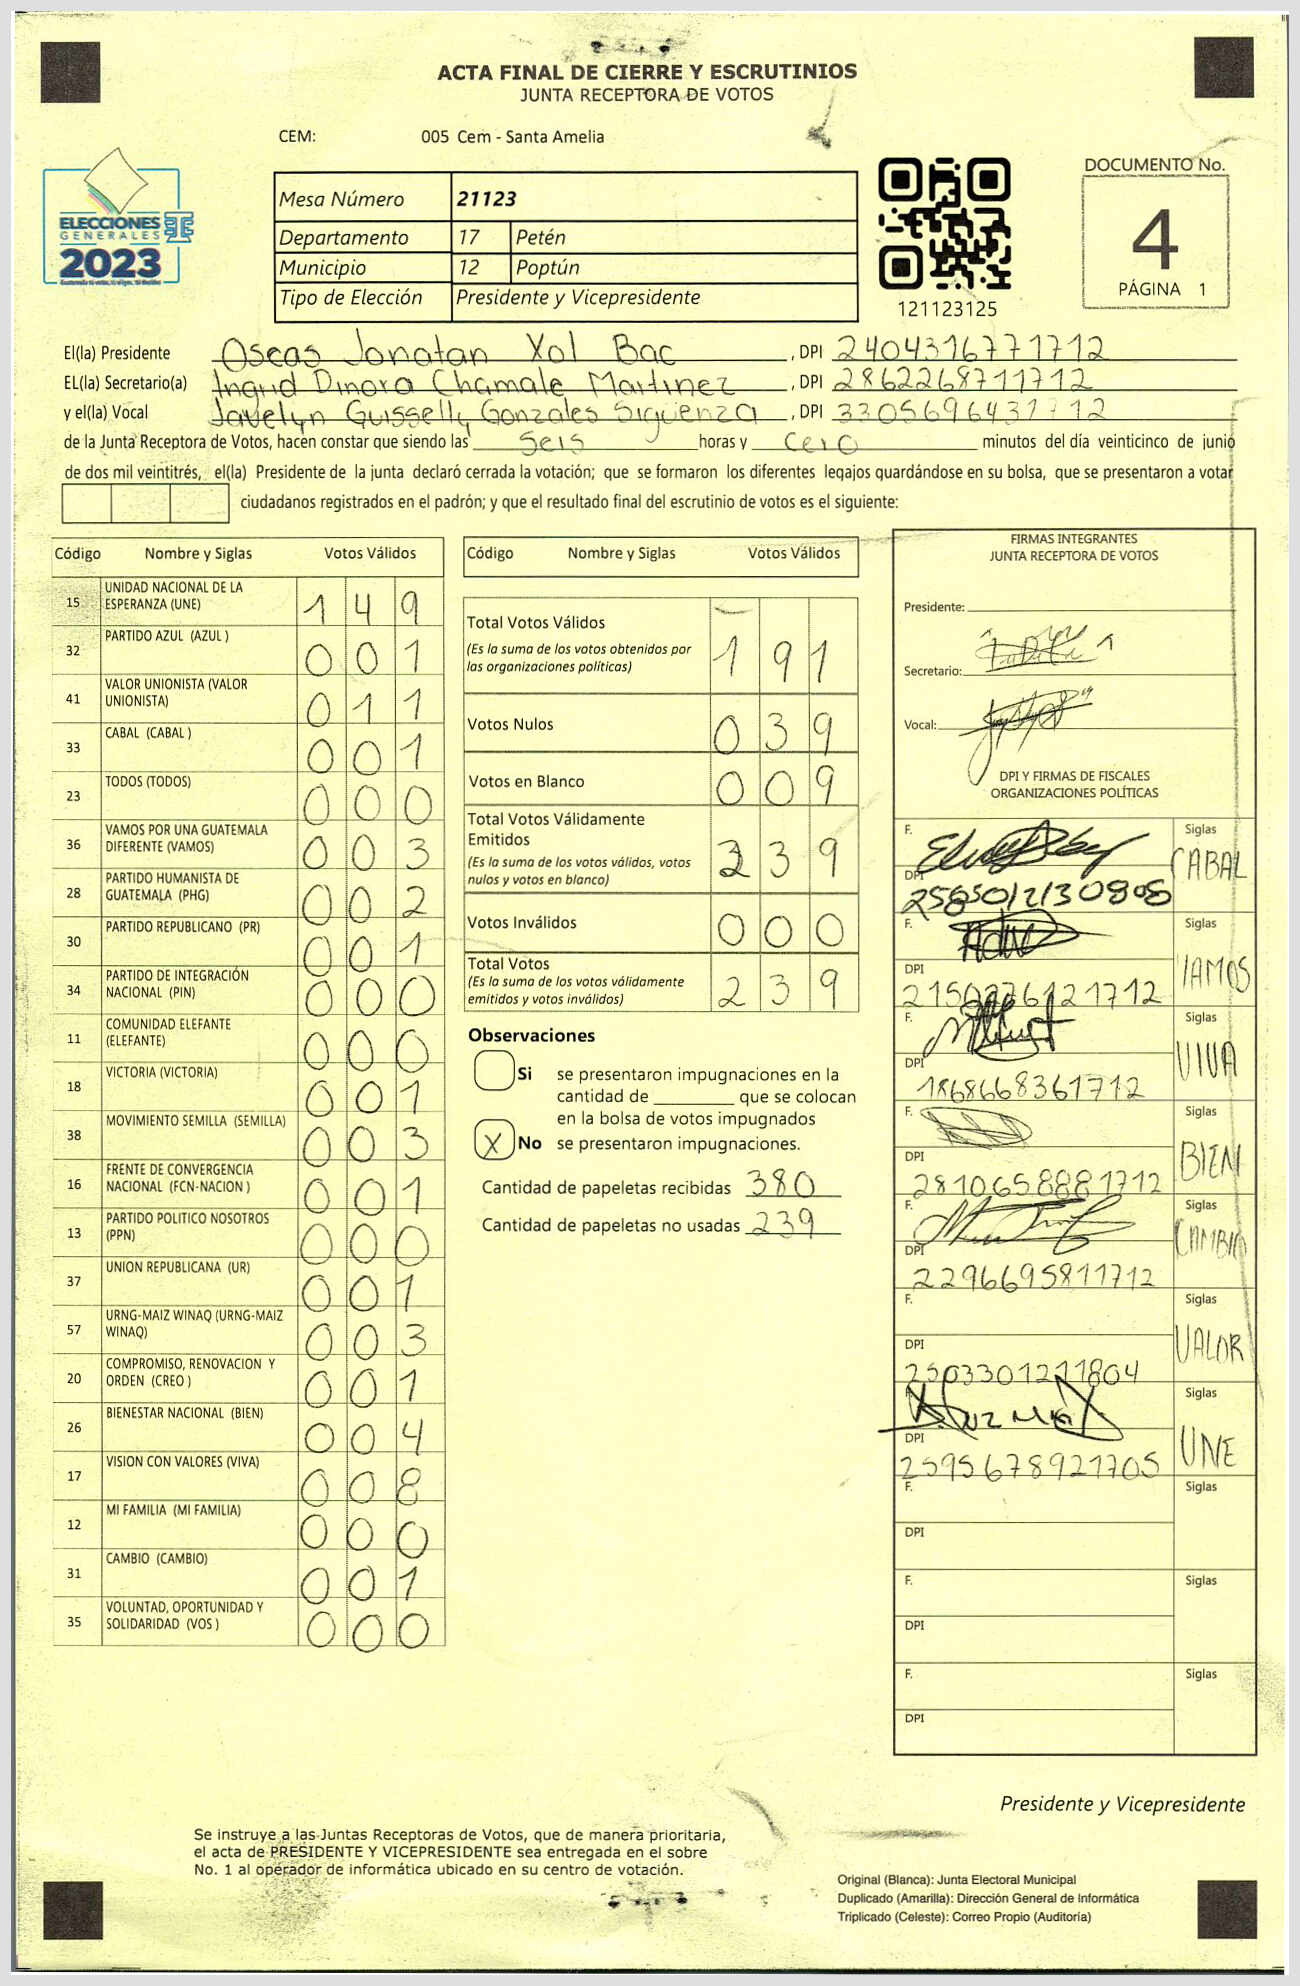 ACTA FINAL DE CIERRE Y ESCRUTINIOS
JUNTA RECEPTORA DE VOTOS
CEM: 005 Cem - Santa Amelia
ELECCIONES
GENERALES
2023
Mesa Número 21123
Departamento 17 Petén
Municipio 12 Poptún
Tipo de Elección Presidente y Vicepresidente
121123125
DOCUMENTO No.
4
PÁGINA 1
El(la) Presidente Oseas Jonatan Xol Bac , DPI 2404316771712
EL(la) Secretario(a) Ingrid Dinora Chamale Martinez , DPI 2862268711712
y el(la) Vocal Javelyn Guisselly Gonzales Sigüenza , DPI 3305696431712
de la Junta Receptora de Votos, hacen constar que siendo las seis horas y cero minutos del día veinticinco de junio
de dos mil veintitrés, el(la) Presidente de la junta declaró cerrada la votación; que se formaron los diferentes legajos quardándose en su bolsa, que se presentaron a votar
ciudadanos registrados en el padrón; y que el resultado final del escrutinio de votos es el siguiente:
Código Nombre y Siglas Votos Válidos
15 UNIDAD NACIONAL DE LA ESPERANZA (UNE) 1 4 9
32 PARTIDO AZUL (AZUL ) 0 0 1
41 VALOR UNIONISTA (VALOR UNIONISTA) 0 1 1
33 CABAL (CABAL ) 0 0 1
23 TODOS (TODOS) 0 0 0
36 VAMOS POR UNA GUATEMALA DIFERENTE (VAMOS) 0 0 3
28 PARTIDO HUMANISTA DE GUATEMALA (PHG) 0 0 2
30 PARTIDO REPUBLICANO (PR) 0 0 1
34 PARTIDO DE INTEGRACIÓN NACIONAL (PIN) 0 0 0
11 COMUNIDAD ELEFANTE (ELEFANTE) 0 0 0
18 VICTORIA (VICTORIA) 0 0 1
38 MOVIMIENTO SEMILLA (SEMILLA) 0 0 3
16 FRENTE DE CONVERGENCIA NACIONAL (FCN-NACION ) 0 0 1
13 PARTIDO POLITICO NOSOTROS (PPN) 0 0 0
37 UNION REPUBLICANA (UR) 0 0 1
57 URNG-MAIZ WINAQ (URNG-MAIZ WINAQ) 0 0 3
20 COMPROMISO, RENOVACION Y ORDEN (CREO ) 0 0 1
26 BIENESTAR NACIONAL (BIEN) 0 0 4
17 VISION CON VALORES (VIVA) 0 0 8
12 MI FAMILIA (MI FAMILIA) 0 0 0
31 CAMBIO (CAMBIO) 0 0 1
35 VOLUNTAD, OPORTUNIDAD Y SOLIDARIDAD (VOS ) 0 0 0
Código Nombre y Siglas Votos Válidos
Total Votos Válidos 1 9 1
(Es la suma de los votos obtenidos por
las organizaciones políticas)
Votos Nulos 0 3 9
Votos en Blanco 0 0 9
Total Votos Válidamente
Emitidos 2 3 9
(Es la suma de los votos válidos, votos
nulos y votos en blanco)
Votos Inválidos 0 0 0
Total Votos 2 3 9
(Es la suma de los votos válidamente
emitidos y votos inválidos)
Observaciones
Si se presentaron impugnaciones en la
cantidad de ________ que se colocan
en la bolsa de votos impugnados
X No se presentaron impugnaciones.
Cantidad de papeletas recibidas 380
Cantidad de papeletas no usadas 239
FIRMAS INTEGRANTES
JUNTA RECEPTORA DE VOTOS
Presidente:
Secretario:
Vocal:
DPI Y FIRMAS DE FISCALES
ORGANIZACIONES POLÍTICAS
F. Siglas CABAL
DPI
F. Siglas VAMOS
DPI
F. Siglas VIVA
DPI 1868668361712
F. Siglas BIEN
DPI 2810658881712
F. Siglas CAMBIO
DPI 2296695811712
F. Siglas VALOR
DPI 2503301211804
F. Siglas UNE
DPI 2595678921705
F. Siglas
DPI
F. Siglas
DPI
F. Siglas
DPI
Presidente y Vicepresidente
Se instruye a las Juntas Receptoras de Votos, que de manera prioritaria,
el acta de PRESIDENTE Y VICEPRESIDENTE sea entregada en el sobre
No. 1 al operador de informática ubicado en su centro de votación.
Original (Blanca): Junta Electoral Municipal
Duplicado (Amarilla): Dirección General de Informática
Triplicado (Celeste): Correo Propio (Auditoría)